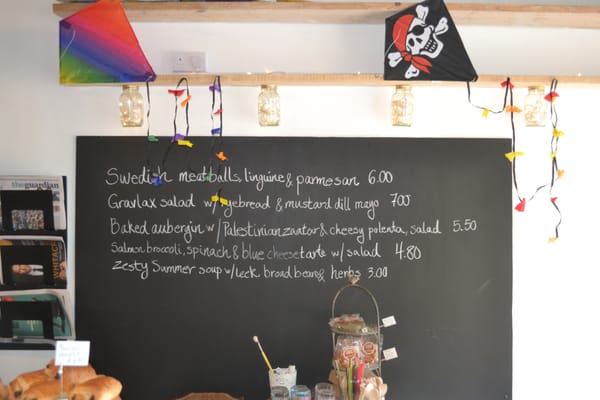 Swedish meatballs, linguine & parmesan 6.00
Gravlax salad w/ ryebread & mustard dill mayo 700
Baked aubergin w/ Palestinian zantar & cheesy polenta, salad 5.50
Salmon broccoli, spinach & blue cheese tarts w/ salad 4.80
Zesty Summer soup w/ leek broad beans herbs 3.00
theguardian